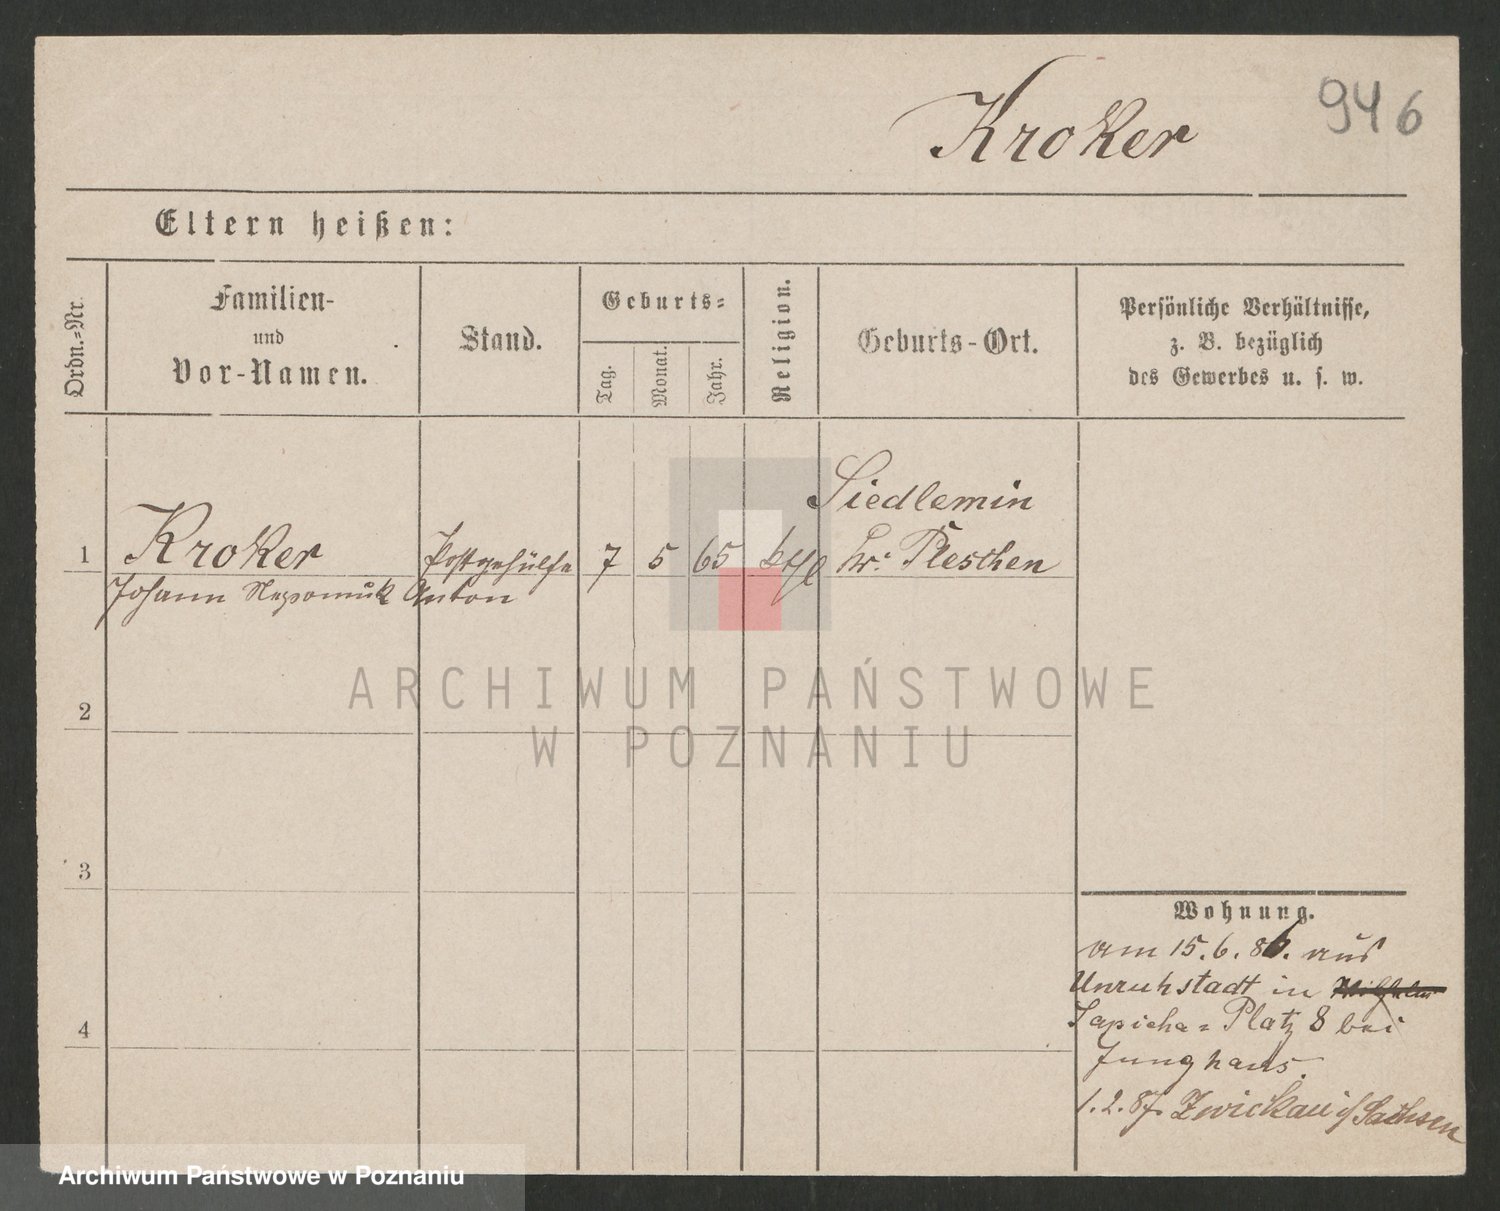 Kroker
946
Eltern heißen:
Ordn.-Nr.
Familien-
und
Vor-Namen.
Stand.
Geburts-
Tag.
Monat.
Jahr.
Religion.
Geburts-Ort.
Persönliche Verhältnisse,
z. B. bezüglich
des Gewerbes u. s. w.
Siedlemin
1 Kroker Postgehülfe 7 5 65 kthl Kr. Pleschen
Johann Nepomuk Anton
ARCHIWUM PAŃSTWOWE
W POZNANIU
2
3
4
Wohnung.
am 15.6.86. aus
Unruhstadt in Wilhelm
Sapieha-Platz 8 bei
Junghans.
1.2.87. Zwickau i/Sachsen
Archiwum Państwowe w Poznaniu